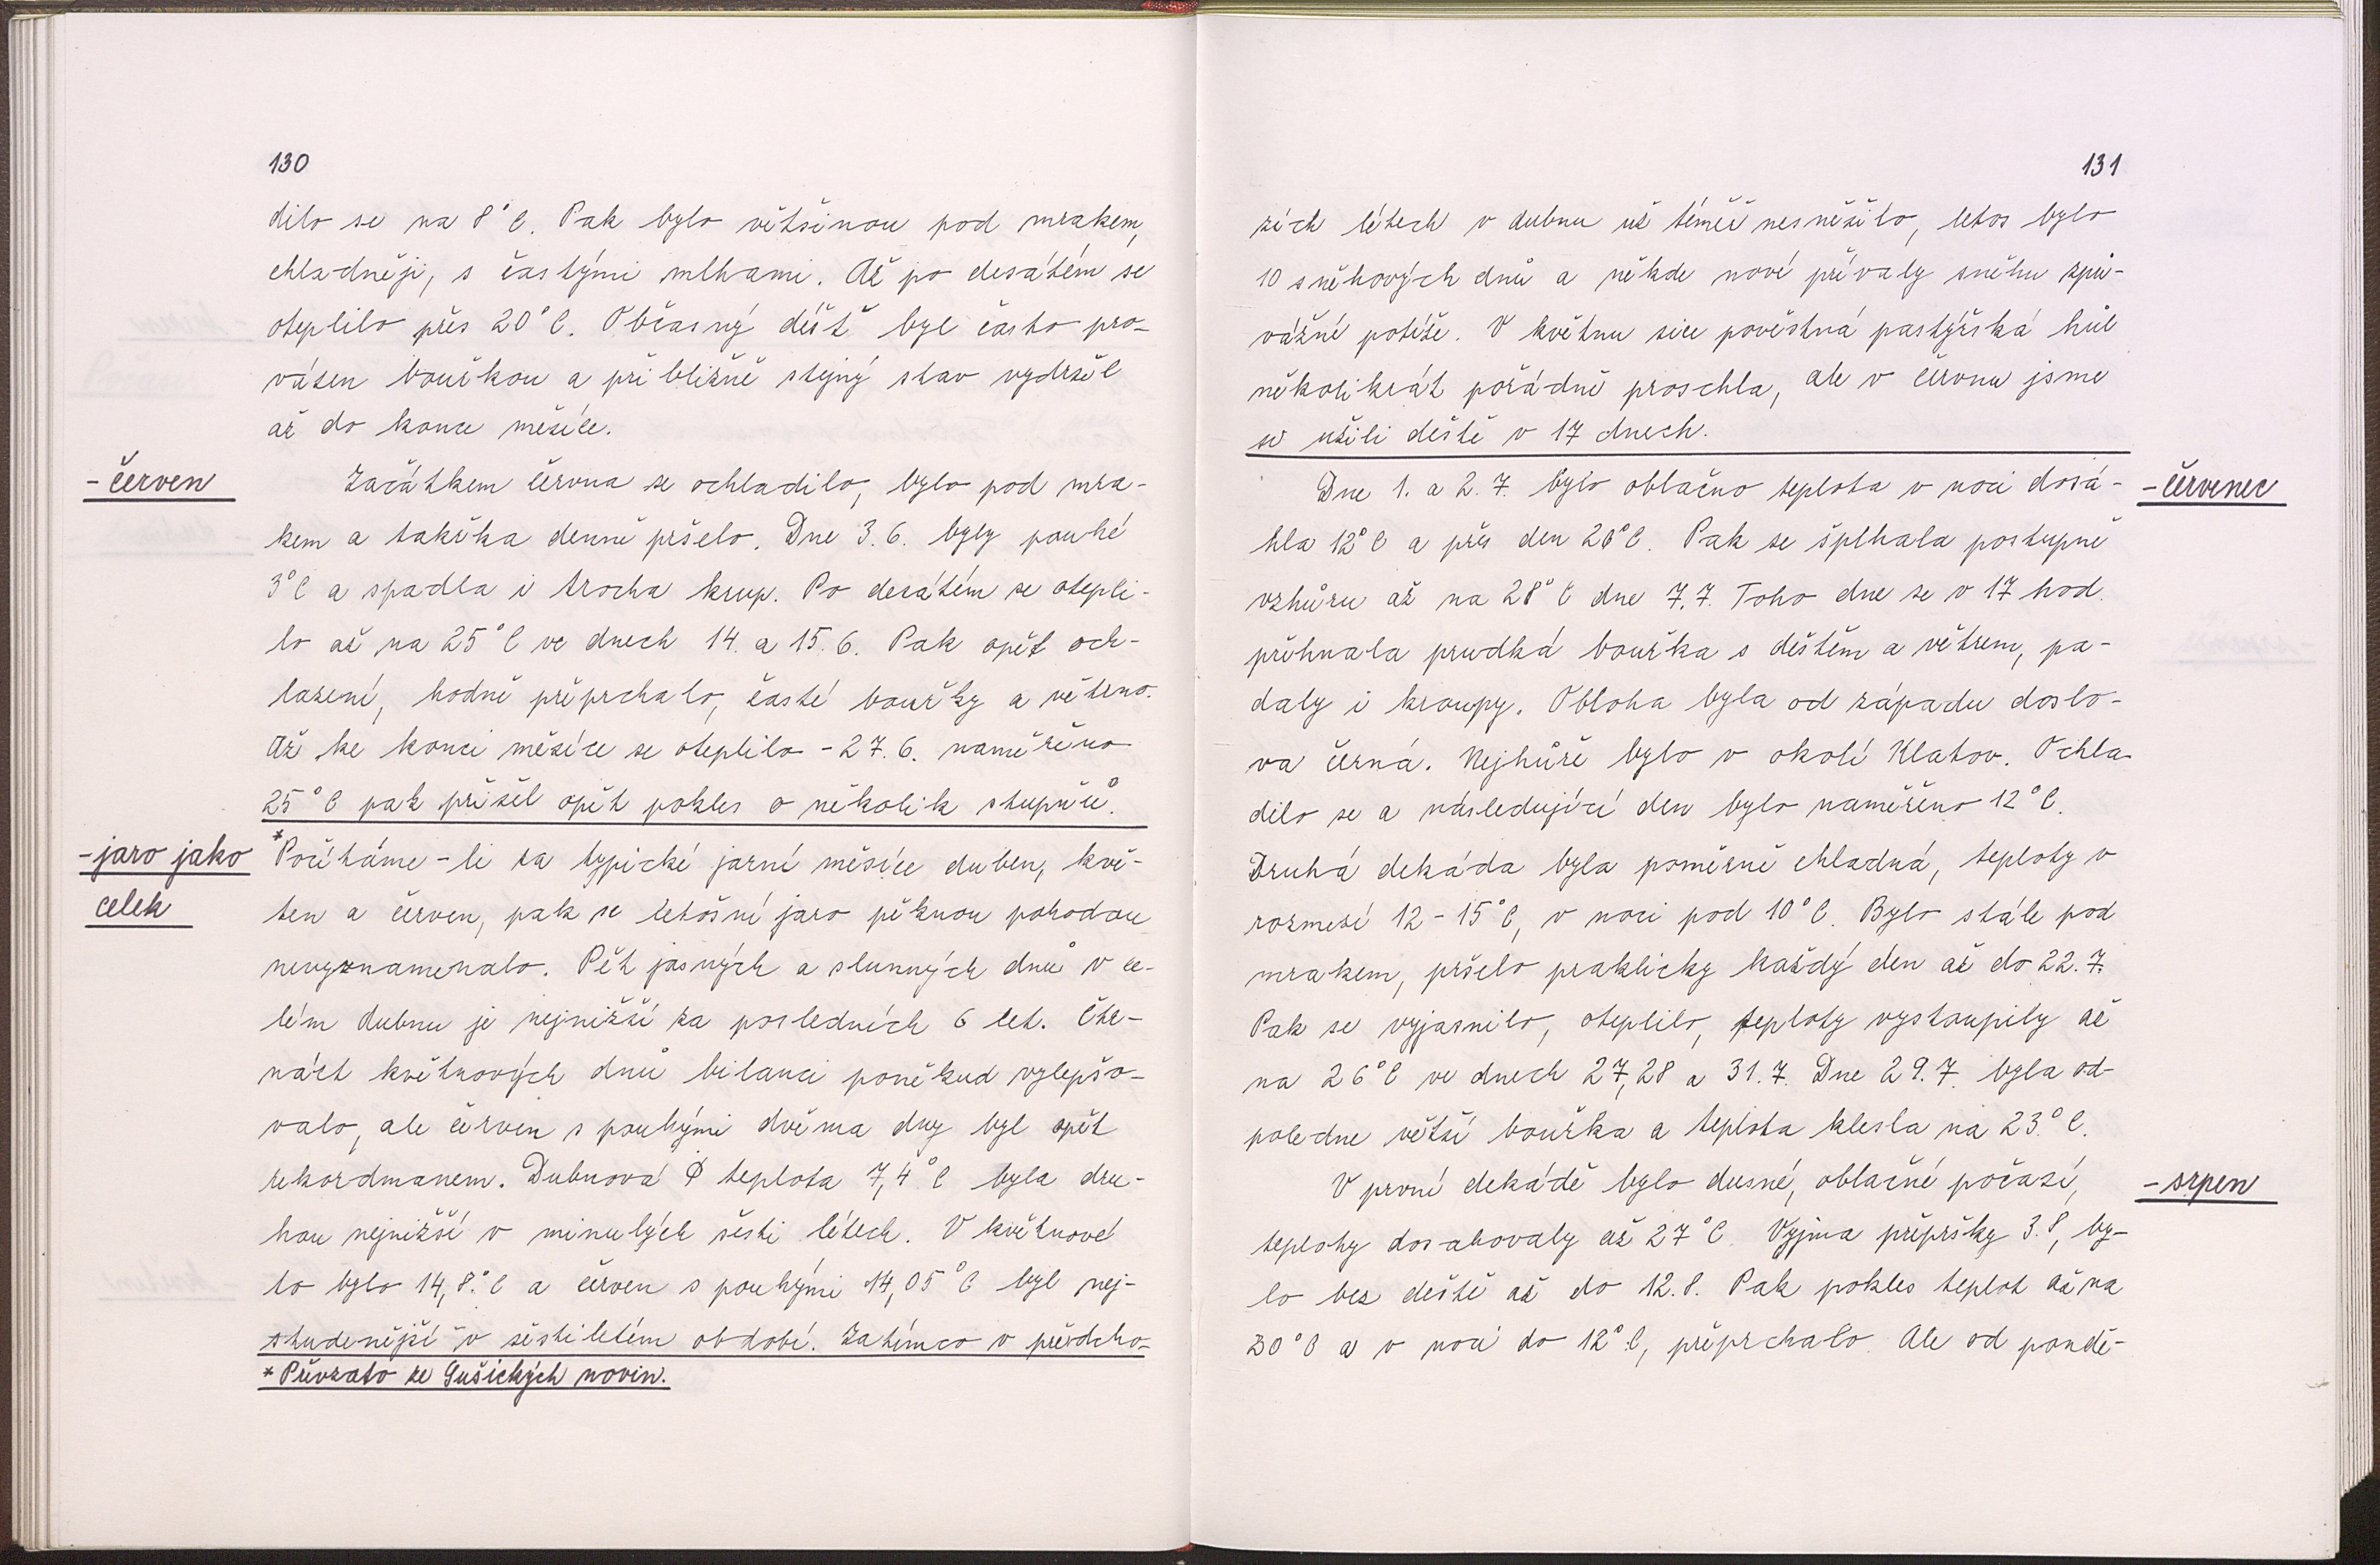 130
dilo se na 8°C. Pak bylo většinou pod mrakem,
chladněji, s častými mlhami. Až po desátém se
oteplilo přes 20°C. Občasný déšť byl často pro-
vázen bouřkou a přibližně stejný stav vydržel
až do konce měsíce.
- červen
Začátkem června se ochladilo, bylo pod mra-
kem a takřka denně pršelo. Dne 3.6. byly pouhé
3°C a spadla i trocha krup. Po desátém se otepli-
lo až na 25°C ve dnech 14. a 15.6. Pak opět och-
lazení, hodně přeprchalo, časté bouřky a větrno.
Až ke konci měsíce se oteplilo - 27.6. naměřeno
25°C pak přišel opět pokles o několik stupňů.
- jaro jako
celek
*Počítáme-li za typické jarní měsíce duben, kvě-
ten a červen, pak se letošní jaro pěknou pohodou
nevyznamenalo. Pět jasných a slunných dnů v ce-
lém dubnu je nejnižší za posledních 6 let. Čtr-
náct květnových dnů bilanci poněkud vylepšo-
valo, ale červen s pouhými dvěma dny byl opět
rekordmanem. Dubnová Φ teplota 7,4°C byla dru-
hou nejnižší v minulých šesti létech. V květnové
to bylo 14,8°C a červen s pouhými 14,05°C byl nej-
studenější v šestiletém období. Zatímco v předcho-
* Převzato ze Sušických novin.
131
zích létech v dubnu už téměř nesněžilo, letos bylo
10 sněhových dnů a někde nové přívaly sněhu způ-
vážné potíže. V květnu sice pověstná pastýřská hůl
několikrát pořádně proschla, ale v červnu jsme
si užili deště v 17 dnech.
Dne 1. a 2.7. bylo oblačno teplota v noci dosá-
- červenec
hla 12°C a přes den 20°C. Pak se šplhala postupně
vzhůru až na 28°C dne 7.7. Toho dne se v 17 hod.
přehnala prudká bouřka s deštěm a větrem, pa-
daly i kroupy. Obloha byla od západu doslo-
va černá. Nejhůře bylo v okolí Klatov. Ochla-
dilo se a následující den bylo naměřeno 12°C.
Druhá dekáda byla poměrně chladná, teploty v
rozmezí 12-15°C, v noci pod 10°C. Bylo stále pod
mrakem, pršelo prakticky každý den až do 22.7.
Pak se vyjasnilo, oteplilo, teploty vystoupily až
na 26°C ve dnech 27, 28 a 31.7. Dne 29.7. byla od-
poledne větší bouřka a teplota klesla na 23°C.
V první dekádě bylo dusné, oblačné počasí,
- srpen
teploty dosahovaly až 27°C. Vyjma přepršky 3.8, by-
lo bez deště až do 12.8. Pak pokles teplot až na
20°C a v noci do 12°C, přeprchalo. Ale od pondě-